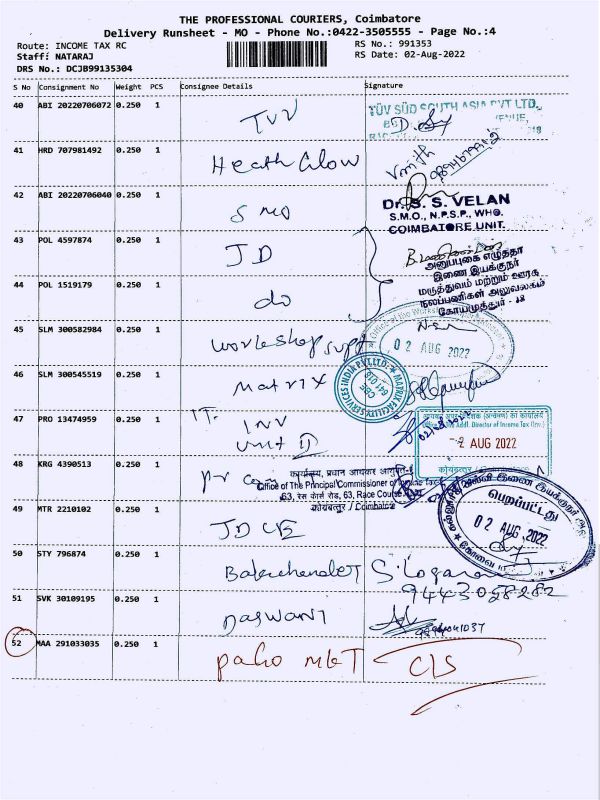 THE PROFESSIONAL COURIERS, Coimbatore
Delivery Runsheet - MO - Phone No.:0422-3505555 - Page No.:4
Route: INCOME TAX RC
RS No.: 991353
Staff: NATARAJ
RS Date: 02-Aug-2022
DRS No.: DCJB99135304
S No Consignment No Weight PCS Consignee Details Signature
40 ABI 20220706072 0.250 1 TUV
TÜV SÜD SOUTH ASIA PVT LTD.
41 HRD 707981492 0.250 1 Heath Glow
42 ABI 20220706040 0.250 1 SMO
Dr. S. S. VELAN
S.M.O., N.P.S.P., WHO.
COIMBATORE UNIT.
43 POL 4597874 0.250 1 JD
அனுப்புகை எழுத்தர்
இணை இயக்குநர்
மருத்துவம் மற்றும் ஊரக
நலப்பணிகள் அலுவலகம்
கோயமுத்தூர் - 18
44 POL 1519179 0.250 1 do
45 SLM 300582984 0.250 1 workshop supt
02 AUG 2022
46 SLM 300545519 0.250 1 Matrix
MATRIX FACILITY SERVICES INDIA PVT LTD.
CBE
641 018
47 PRO 13474959 0.250 1 IT.
INV
Unit II
Addl. Director of Income Tax (Inv.)
-2 AUG 2022
कोयंबटूर / Coimbatore
48 KRG 4390513 0.250 1 Pr com
कार्यालय, प्रधान आयकर आयुक्त
Office of The Principal Commissioner of Income Tax
63, रेस कोर्स रोड, 63, Race Course
कोयंबटूर / Coimbatore
49 MTR 2210102 0.250 1 JDCE
பெறப்பட்டது
02 AUG 2022
50 STY 796874 0.250 1 Balachander S. Logan
9443058282
51 SVK 30109195 0.250 1 Daswani
52 MAA 291033035 0.250 1 Paho MKT C/S